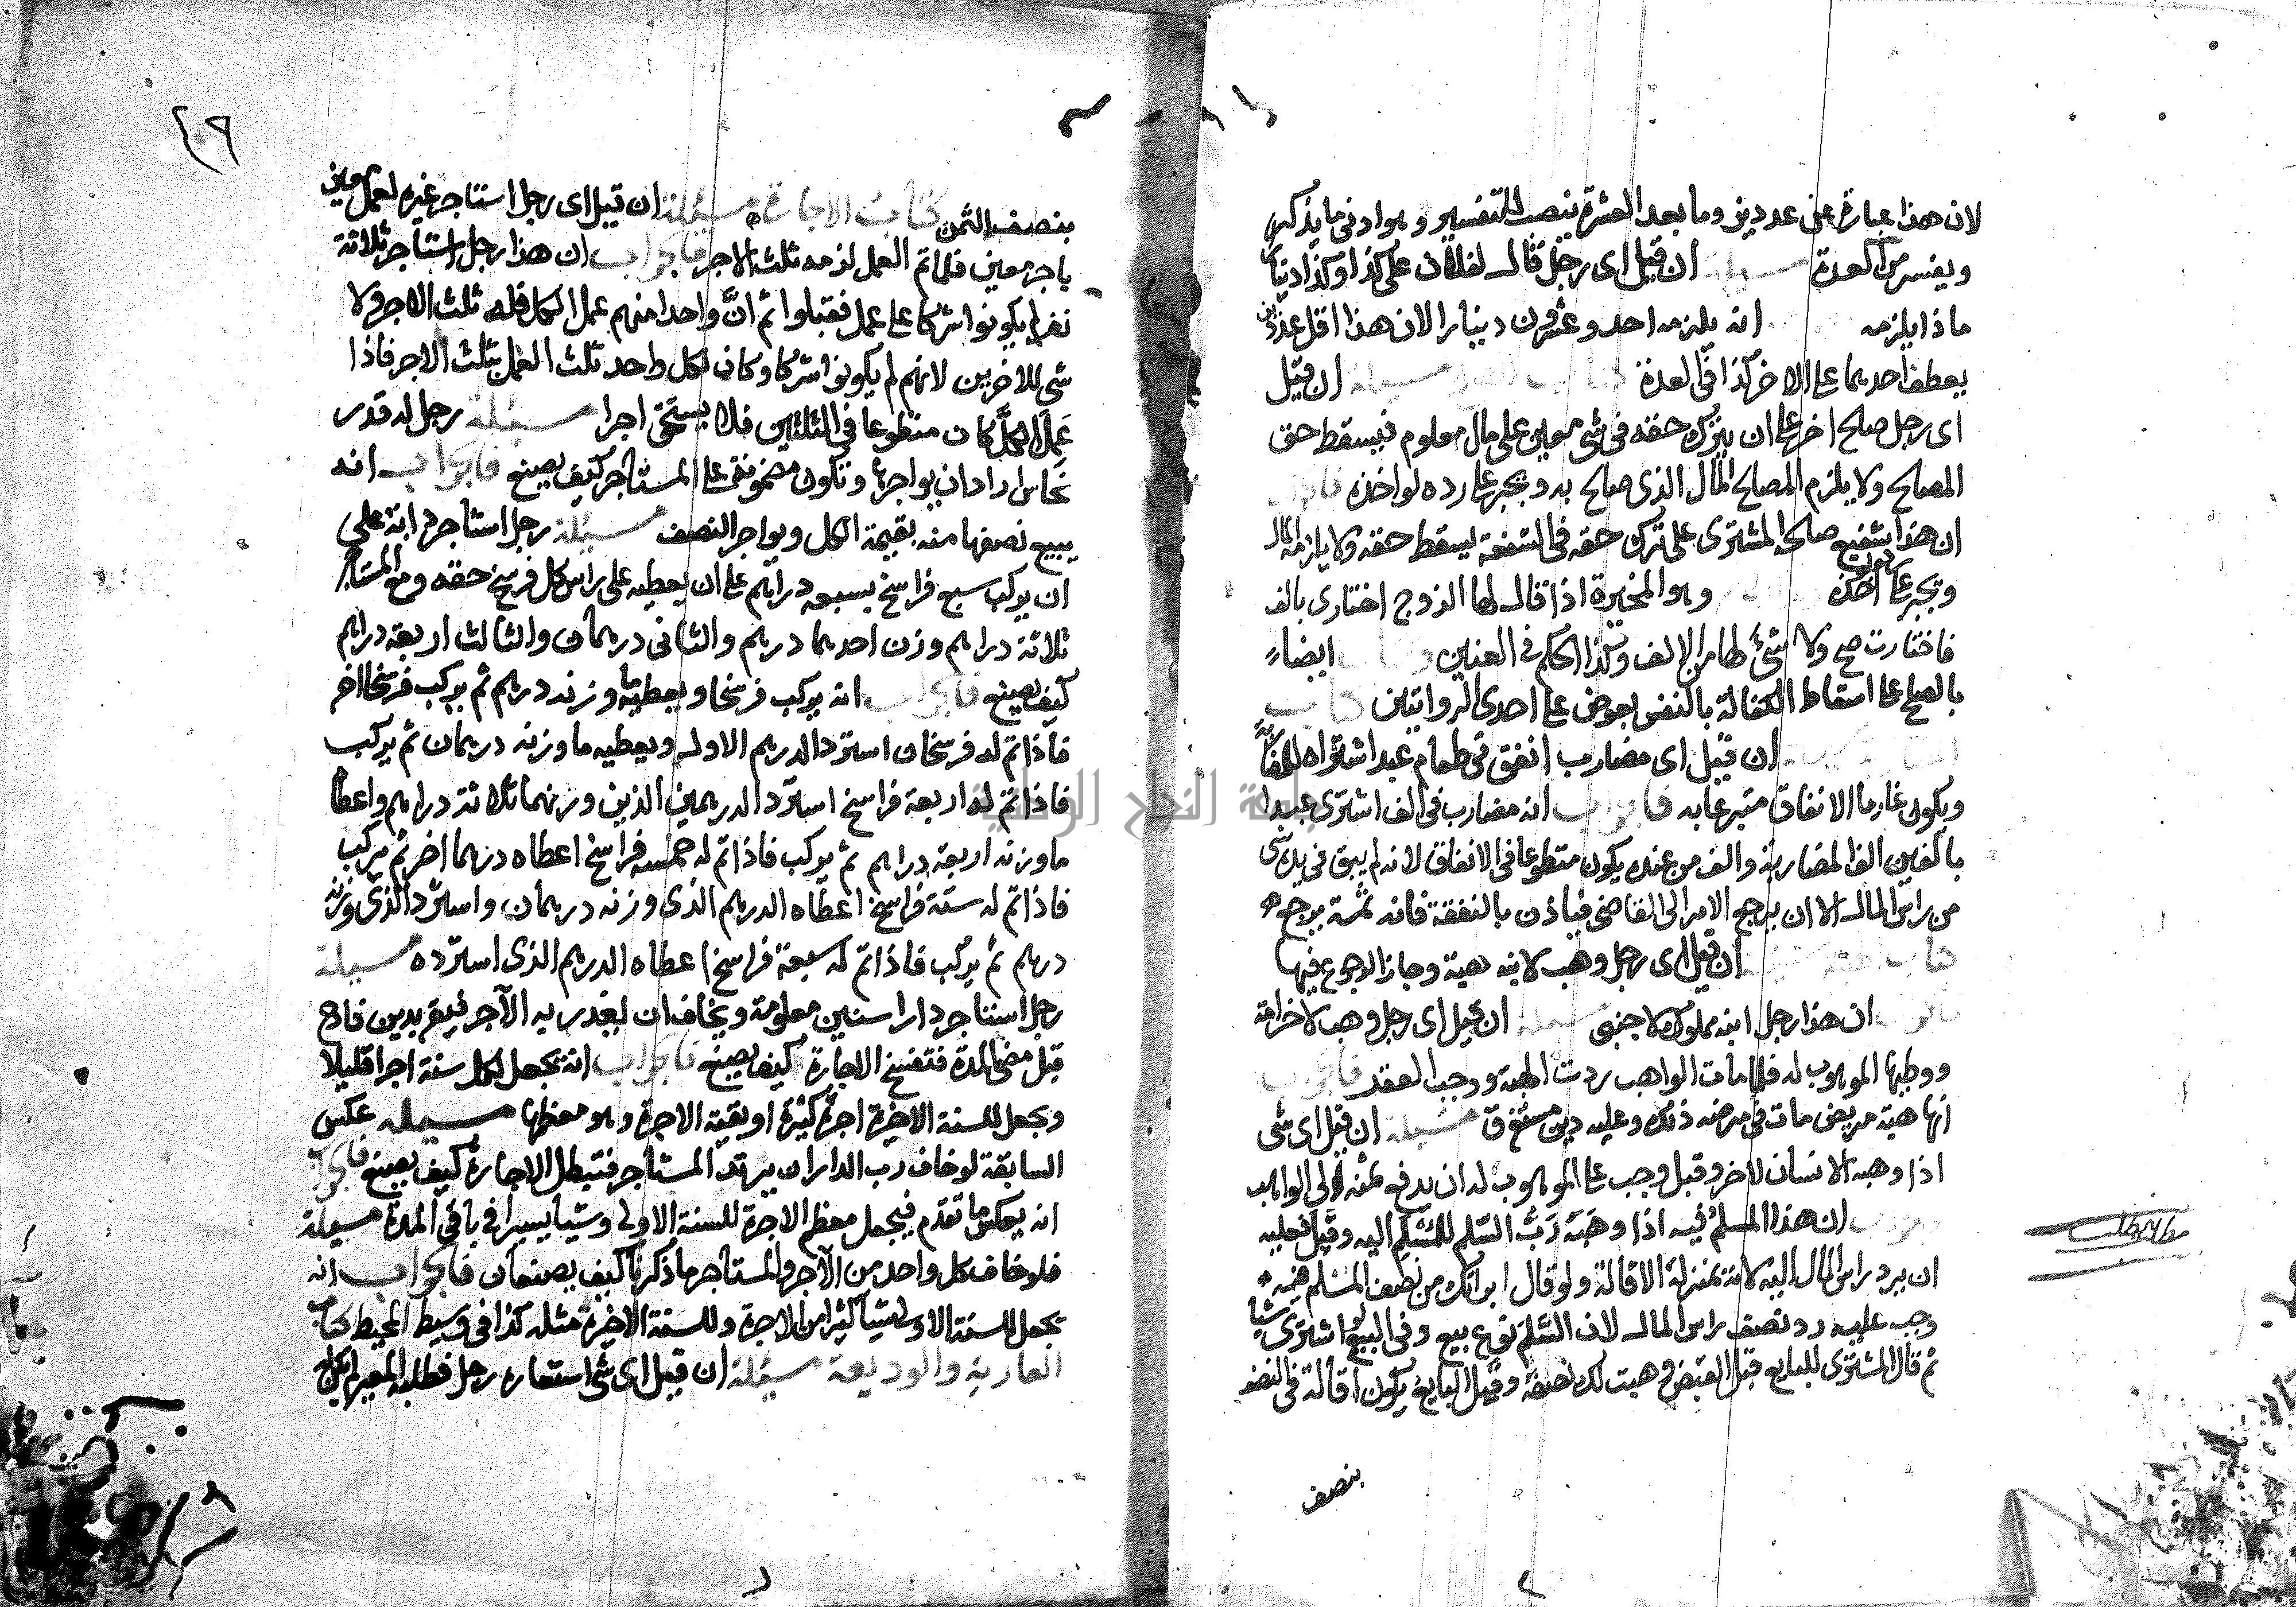 لان هذا عبارة عن عددين وما بعد العشرة ينصب للتفسير وهو ادنى ما يذكر
ويفسر من العدة ان قيل اى رجل قال لفلان على كذا وكذا دينارا
ماذا يلزمه انه يلزمه احد وعشرون دينارا لان هذا اقل عددين
يعطف احدهما على الاخر كذا فى العدة مسيلة ان قيل
اى رجل صالح اخر على ان يترك حقه فى شى معين على مال معلوم فيسقط حق
المصالح ولا يلزم المصالح المال الذى صالح به ويجبر على رده لو اخذه
ان هذا شفيع صالح المشترى على ترك حقه فى الشفعة يسقط حقه ولا يلزمه المال
ويجبر على اخذه وهو المخيرة اذا قال لها الزوج اختارى بالف
فاختارت صح ولا شئ لها من الالف وكذا الحكم فى العنين ايضا
بالصلح على اسقاط الكفالة بالنفس بعوض على احدى الروايتين كتاب
ان قيل اى مضارب انفق فى طعام عبد اشتراه للمضاربة
ويكون غارما الانفاق متبرعا به فالجواب انه مضارب فى الف اشترى عبدا
بالفين الف المضاربة والف من عنده يكون متطوعا فى الانفاق لانه لم يبق فى يده شى
من راس المال الا ان يرجع الامر الى القاضى فياذن بالنفقة فانه ثمة يرجع
ان قيل اى رجل وهب لابنه هبة وجاز الرجوع فيها
ان هذا رجل ابنه مملوك لاجنبى مسيلة ان قيل اى رجل وهب لاخر امة
ووطيها الموهوب له فلما مات الواهب ردت الهبة ووجب العقر فالجواب
انها هبة مريض مات فى مرضه ذلك وعليه دين مستغرق مسيلة ان قيل اى شى
اذا وهبه الانسان لاخر وقبل وجب على الموهوب له ان يدفع ثمنه الى الواهب
ان هذا المسلم فيه اذا وهبه رب السلم للمسلم اليه وقبل فعليه
ان يرد راس المال اليه لانه بمنزلة الاقالة ولو قال ابراتك من نصف المسلم فيه
وجب عليه رد نصف راس المال لان السلم نوع بيع وفى البيع لو اشترى شيا
ثم قال المشترى للبايع قبل القبض وهبت لك نصفه وقبل البايع يكون اقالة فى النصف
بنصف
بنصف الثمن كتاب الاجارة مسيلة ان قيل اى رجل استاجر غيره لعمل معين
باجر معين فلما تم العمل لزمه ثلث الاجر فالجواب ان هذا رجل استاجر ثلاثة
نفر لم يكونوا شركا على عمل فقبلوا ثم ان واحدا منهم عمل الكل فله ثلث الاجر ولا
شى للاخرين لانهم لم يكونوا شركا وكان لكل واحد ثلث العمل بثلث الاجر فاذا
عمل الكل كان متطوعا فى الثلثين فلا يستحق اجرا مسيلة رجل له قدر
نحاس اراد ان يواجرها وتكون مضمونة على المستاجر كيف يصنع فالجواب انه
يبيع نصفها منه بقيمة الكل ويواجر النصف مسيلة رجل استاجر دابة على
ان يركب سبع فراسخ بسبعه دراهم على ان يعطيه على راس كل فرسخ حقه ومع المستاجر
ثلاثة دراهم وزن احدهما درهم والثانى درهمان والثالث اربعة دراهم
كيف يصنع فالجواب انه يركب فرسخا ويعطيه ما وزنه درهم ثم يركب فرسخا اخر
فاذا تم له فرسخان استرد الدرهم الاول ويعطيه ما وزنه درهمان ثم يركب
فاذا تم له اربعة فراسخ استرد الدرهمين الذين وزنهما ثلاثة دراهم واعطا
ما وزنه اربعة دراهم ثم يركب فاذا تم له خمسة فراسخ اعطاه درهما اخر ثم يركب
فاذا تم له ستة فراسخ اعطاه الدرهم الذى وزنه درهمان واسترد الذى وزنه
درهم ثم يركب فاذا تم له سبعة فراسخ اعطاه الدرهم الذى استرده مسيلة
رجل استاجر دارا سنين معلومة ويخاف ان يغدر به الآجر فيقر بدين فادح
قبل مضى المدة فتفسخ الاجارة كيف يصنع فالجواب انه يجعل لكل سنة اجرا قليلا
ويجعل للسنة الاخيرة اجرة كثيرة او بقية الاجرة وهو معظمها مسيله عكس
السابقة لو خاف رب الدار ان يرتد المستاجر فتبطل الاجارة كيف يصنع فالجواب
انه يعكس ما تقدم فيجعل معظم الاجرة للسنة الاولى وشيا يسيرا فى باقى المدة مسيلة
فلو خاف كل واحد من الآجر والمستاجر ما ذكرنا كيف يصنعان فالجواب انه
يجعل للسنة الاولى شيا كثيرا من الاجرة وللسنة الاخيرة مثله كذا فى وسيط المحيط كتاب
العارية والوديعة مسيلة ان قيل اى شى استعاره رجل فطلبه المعير لم يكن له